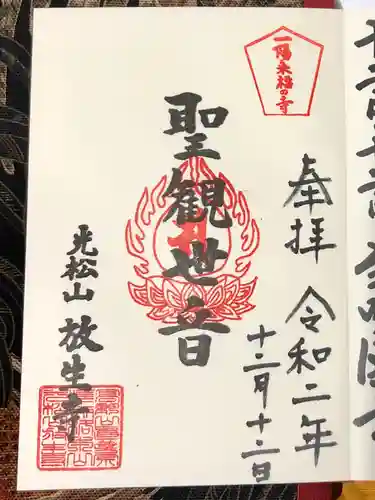 一陽来福の寺
奉拝
令和二年
十二月十二日
聖観世音
光松山
放生寺